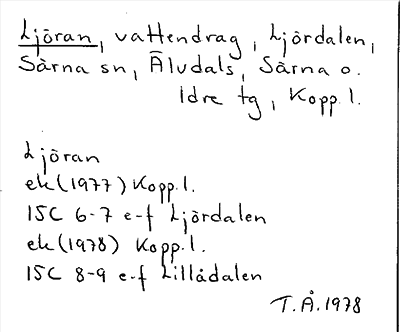 Ljöran, vattendrag, Ljördalen,
Särna sn, Älvdals, Särna o.
Idre tg, Kopp.l.
Ljöran
ek (1977) Kopp.l.
15C 6-7 e-f Ljördalen
ek (1978) Kopp.l.
15C 8-9 e-f Lillådalen
T.Å. 1978